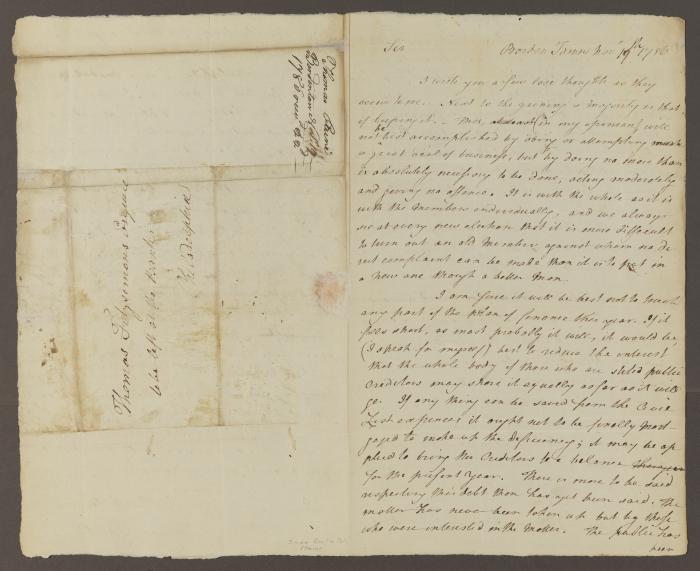 Thomas Paine
Bordenton
1786
Thomas Fitzsimons Esquire
to be left at the Bank
Philadelphia
Sir Borden Town Novr 19th 1786
I wish you a few lose thoughts as they
occur to me. Next to the gaining a majority is that
of keeping it. This, in my opinion will
not be best accomplished by doing or attempting much
a great deal of business, but by doing no more than
is absolutely necessary to be done, acting moderately
and giving no offence. It is with the whole as it is
with the Members individually, and we always
see at every new election that it is more difficult
to turn out an old Member against whom no di
rect complaint can be made than it is to put in
a new one though a better Man.
I am sure it will be best not to touch
any part of the plan of finance this year. If it
falls short, as most probably it will, it would be
(I speak for myself) best to reduce the interest
that the whole body of those who are stiled public
Creditors may share it equally as far as it will
go. If any thing can be saved from the Civil
List expences it ought not to be finally mort
gaged to make up the deficiency; it may be ap
plied to bring the Creditors to a balance
for the present Year. There is more to be said
respecting this debt than has yet been said. The
matter has never been taken up but by those
who were interested in the Matter. The public has
been